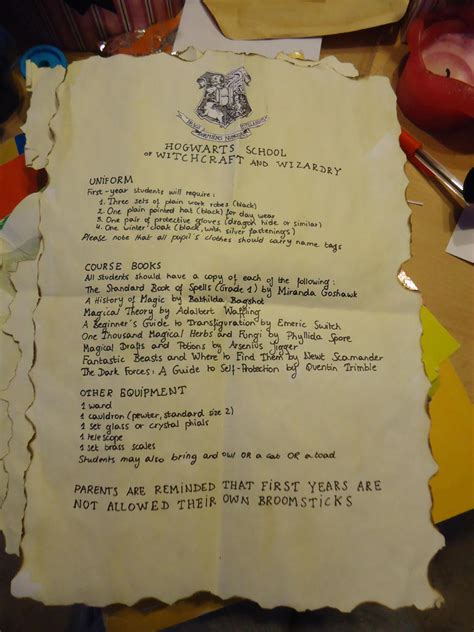 HOGWARTS SCHOOL
OF WITCHCRAFT AND WIZARDRY
UNIFORM
First-year students will require:
1. Three sets of plain work robes (black)
2. One plain pointed hat (black) for day wear
3. One pair of protective gloves (dragon hide or similar)
4. One winter cloak (black, with silver fastenings)
Please note that all pupil's clothes should carry name tags
COURSE BOOKS
All students should have a copy of each of the following:
The Standard Book of Spells (Grade 1) by Miranda Goshawk
A History of Magic by Bathilda Bagshot
Magical Theory by Adalbert Waffling
A Beginner's Guide to Transfiguration by Emeric Switch
One Thousand Magical Herbs and Fungi by Phyllida Spore
Magical Drafts and Potions by Arsenius Jigger
Fantastic Beasts and Where to Find Them by Newt Scamander
The Dark Forces: A Guide to Self-Protection by Quentin Trimble
OTHER EQUIPMENT
1 wand
1 cauldron (pewter, standard size 2)
1 set glass or crystal phials
1 telescope
1 set brass scales
Students may also bring and owl OR a cat OR a toad
PARENTS ARE REMINDED THAT FIRST YEARS ARE
NOT ALLOWED THEIR OWN BROOMSTICKS